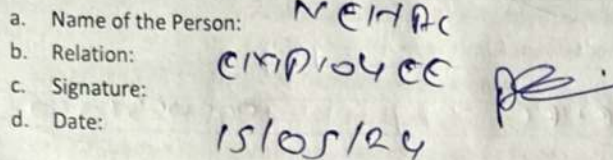 a. Name of the Person: NEHAL
b. Relation: EMPLOYEE
c. Signature:
d. Date: 15/05/24